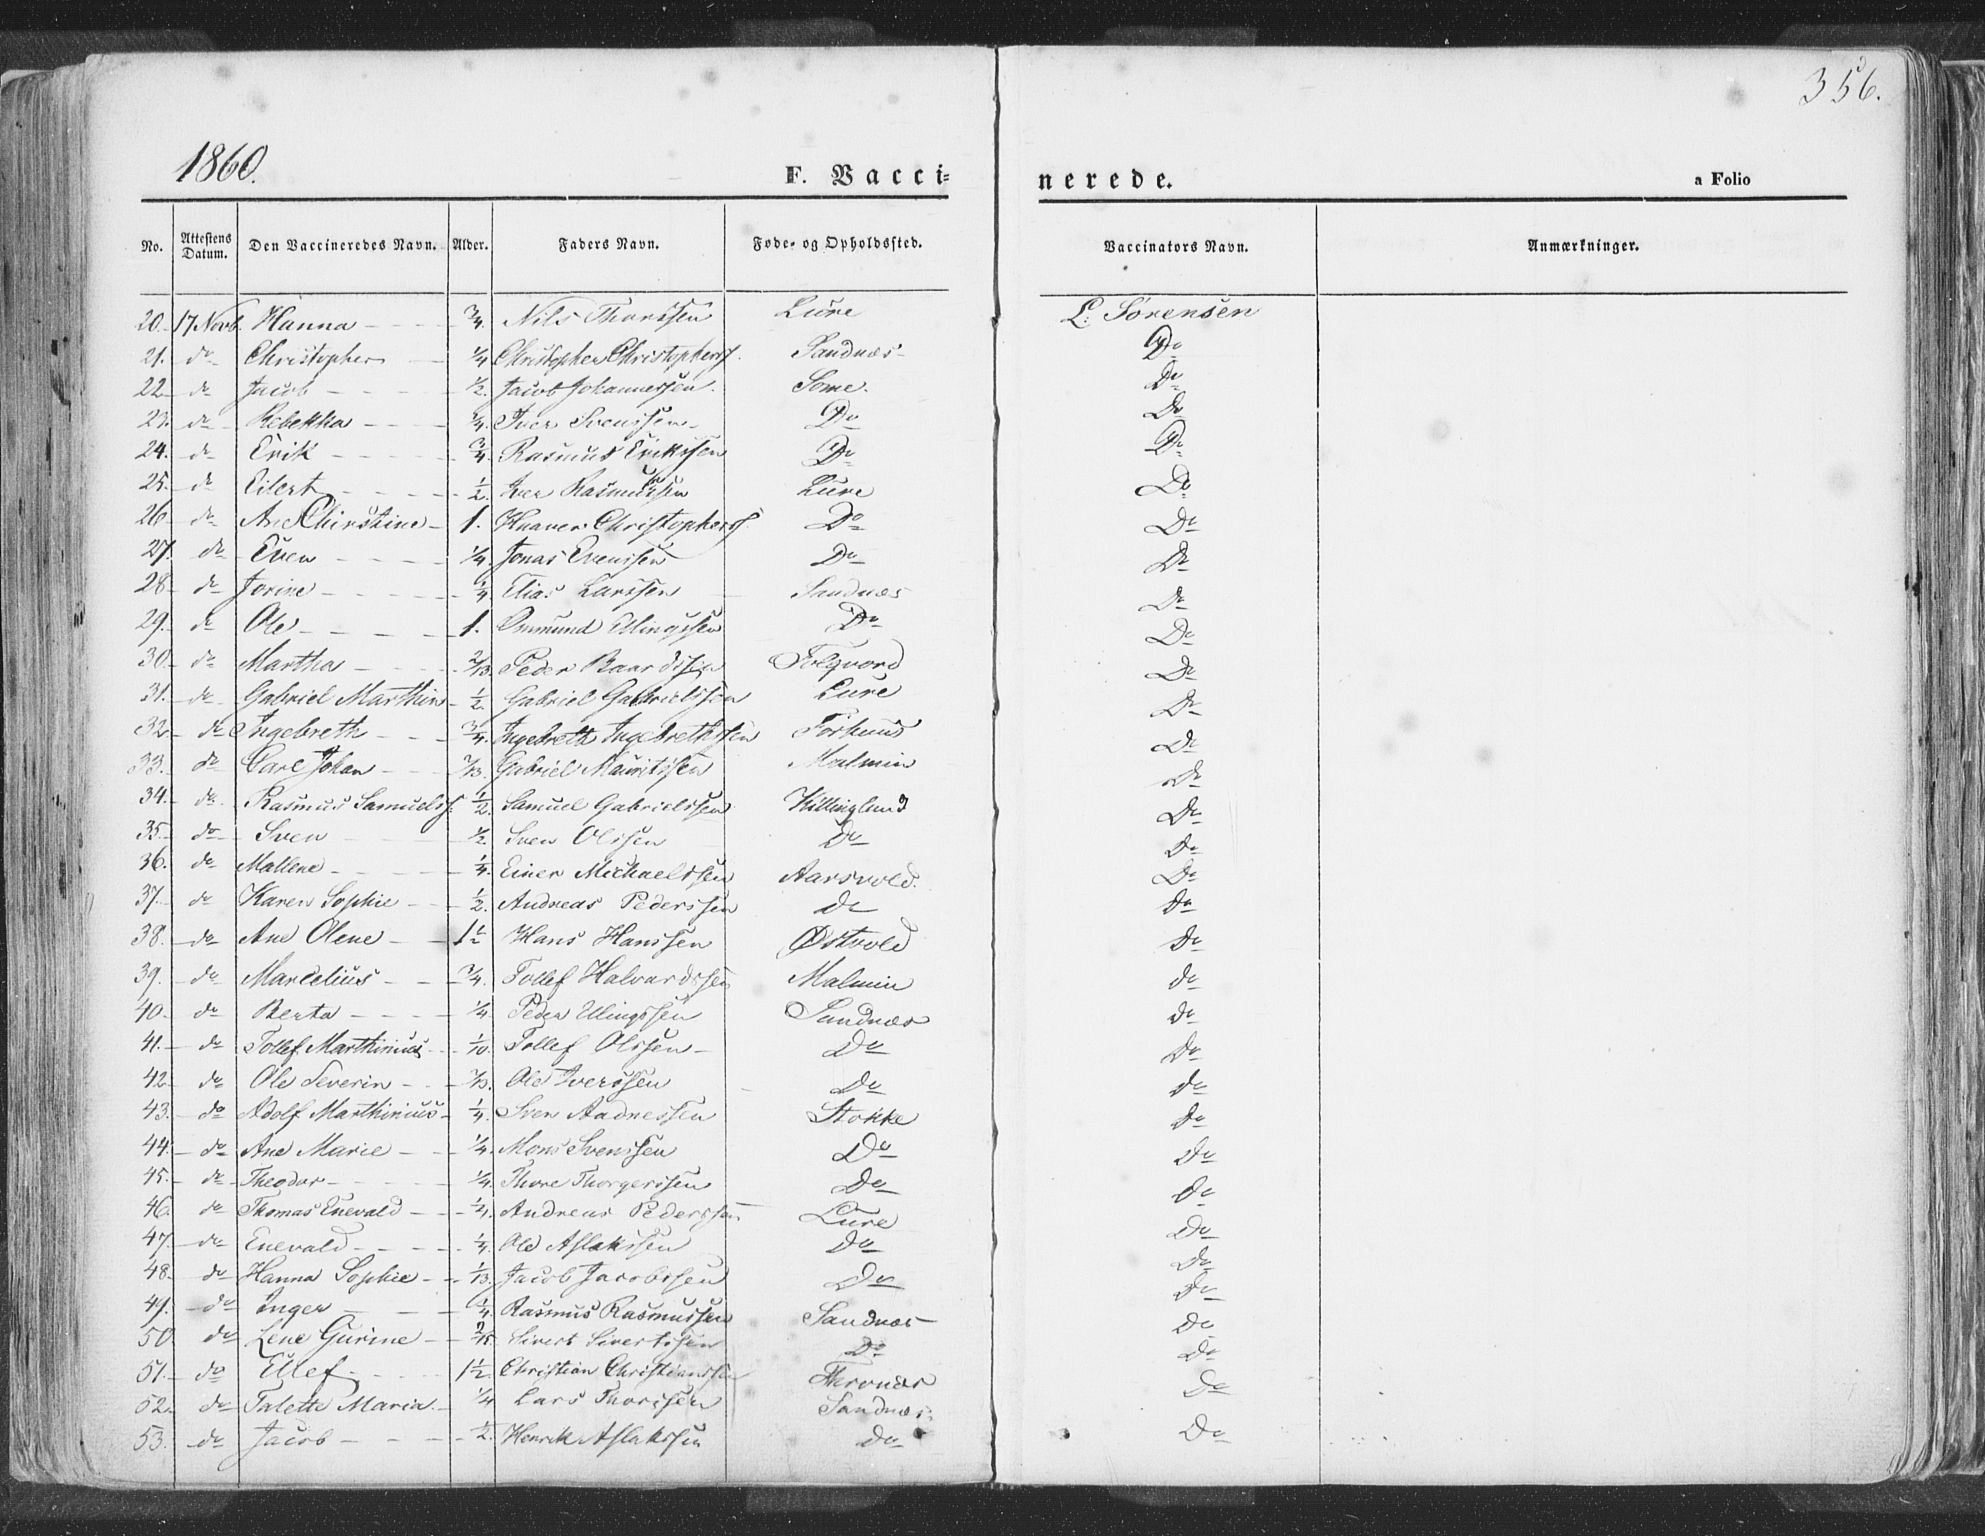 356.
1860.
F. Vacci=
nerede.
a Folio
No. Attestens Datum. Den Vaccineredes Navn. Alder. Faders Navn. Føde- og Opholdssted. Vaccinators Navn. Anmærkninger.
20. 17 Novb. Hanna 3/4. Nils Thorssen Lure L. Sørensen
21. do Christopher 1/4 Christopher Christophers. Sandnæs Do
22 do Jacob 1/2. Jacob Johannessen. Some. Do
23. do Rebekka 3/4. Iver Svenssen Do Do
24. do Erik 3/4 Rasmus Erikssen Do Do
25. do Eilert 1/2. Iver Rasmussen Lure Do
26 do Ane Christine 1. Haaver Christophers. Do Do
27. do Even 1/4. Jonas Evenssen Do Do
28 do Jorine 1/4 Elias Larssen Sandnæs Do
29. do Ole 1. Ommund Ellingssen Do Do
30. do Martha 2/13. Peder Baardssen Folqvord Do
31. do Gabriel Marthin 1/2 Gabriel Gabrielssen Lure Do
32 do Ingebreth 3/4. Ingebreth Ingebrethssen Forhund Do
33. do Carl Johan Gabriel Mauritssen Malmin Do
34. do Rasmus Samuelss. 1/2 Samuel Gabrielssen Hillinglund Do
35. do Sven 1/2 Sven Olssen Do Do
36. do Mallene 1/4. Einer Michaelssen Aarsvold. Do
37. do Karen Sophie 1/2. Andreas Pederssen do Do
38. do Ane Olene 1 1/2 Hans Hanssen Østvold Do
39. do Marcelius 3/4. Tollef Halvardssen Malmin do
40. do Berta 1/4 Peder Ellingssen Sandnæs do
41. do Tollef Marthinius 1/10. Tollef Olssen Do Do
42 do Ole Severin Ole Iverssen Do do
43. do Adolf Marthinius 1/4. Sven Aadnessen Stokke do
44. do Ane Marie 1/4. Mons Svenssen Do Do
45. do Theodor 1/4. Thore Thorgerssen Do Do
46. do Thomas Enevald 1/4. Andreas Pederssen Lure Do
47. do Enevald 1/4. Ole Aslakssen Do Do
48. do Hanna Sophie 1/13. Jacob Jacobssen Do Do
49. do Inger 1/4. Rasmus Rasmussen Sandnæs Do
50. do Lene Gurine 2/15. Sivert Sivertssen Do Do
51. do Ellef 1 1/2. Christian Christianssen Do
52. do Talette Maria 1/4 Lars Thorssen Sandnæs Do
53. do Jacob 1/2. Henrik Aslakssen Do Do